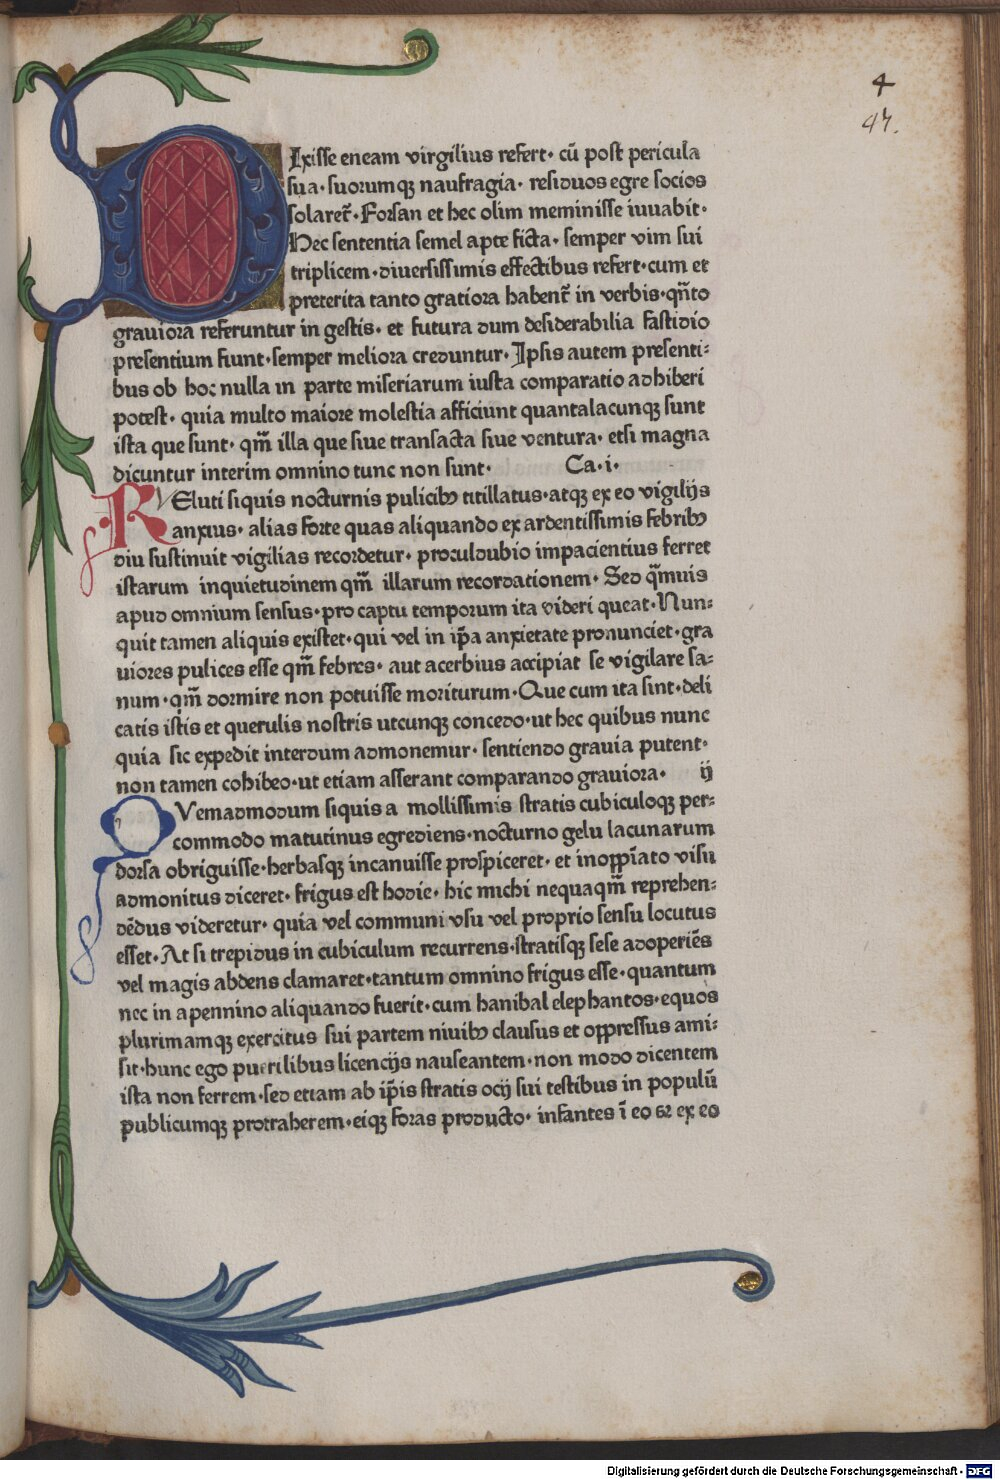 4
47.
DIxisse eneam virgilius refert· cū post pericula
sua· suorumqꝫ naufragia· residuos egre socios
solaret̄· Forsan et hec olim meminisse iuuabit·
Hec sententia semel apte ficta· semper vim sui
triplicem· diuersissimis effectibus refert· cum et
preterita tanto gratiora habent̄ in verbis· qn̄to
grauiora referuntur in gestis· et futura dum desiderabilia fastidio
presentium fiunt· semper meliora creduntur· Ipsis autem presenti⸗
bus ob hoc nulla in parte miseriarum iusta comparatio adhiberi
potest· quia multo maiore molestia afficiunt quantalacunqꝫ sunt
ista que sunt· qm̄ illa que siue transacta siue ventura· etsi magna
dicuntur interim omnino tunc non sunt· Ca·i·
VEluti siquis nocturnis pulicibꝫ titillatus· atqꝫ ex eo vigilijs
anxius· alias forte quas aliquando ex ardentissimis febribꝫ
diu sustinuit vigilias recordetur· proculdubio impacientius ferret
istarum inquietudinem qm̄ illarum recordationem· Sed q̄muis
apud omnium sensus· pro captu temporum ita videri queat· Nun⸗
quit tamen aliquis existet· qui vel in ip̄a anxietate pronunciet· gra
uiores pulices esse qm̄ febres· aut acerbius accipiat se vigilare sa⸗
num· qm̄ dormire non potuisse moriturum· Que cum ita sint· deli
catis istis et querulis nostris utcunqꝫ concedo· ut hec quibus nunc
quia sic expedit interdum admonemur· sentiendo grauia putent·
non tamen cohibeo· ut etiam asserant comparando grauiora· ij
QVemadmodum siquis a mollissimis stratis cubiculoqꝫ per⸗
commodo matutinus egrediens· nocturno gelu lacunarum
dorsa obriguisse· herbasqꝫ incanuisse prospiceret· et inopp̄iato visu
admonitus diceret· frigus est hodie· hic michi nequaqm̄ reprehen⸗
dēdus videretur· quia vel communi vsu vel proprio sensu locutus
esset· At si trepidus in cubiculum recurrens· stratisqꝫ sese adoperiēs
vel magis abdens clamaret· tantum omnino frigus esse· quantum
nec in apennino aliquando fuerit· cum hanibal elephantos· equos
plurimamqꝫ exercitus sui partem niuibꝫ clausus et oppressus ami⸗
sit· hunc ego puerilibus licencijs nauseantem· non modo dicentem
ista non ferrem· sed etiam ab ip̄is stratis ocij sui testibus in populū
publicumqꝫ protraherem· eiqꝫ foras producto· infantes ī eo et ex eo
Digitalisierung gefördert durch die Deutsche Forschungsgemeinschaft - DFG